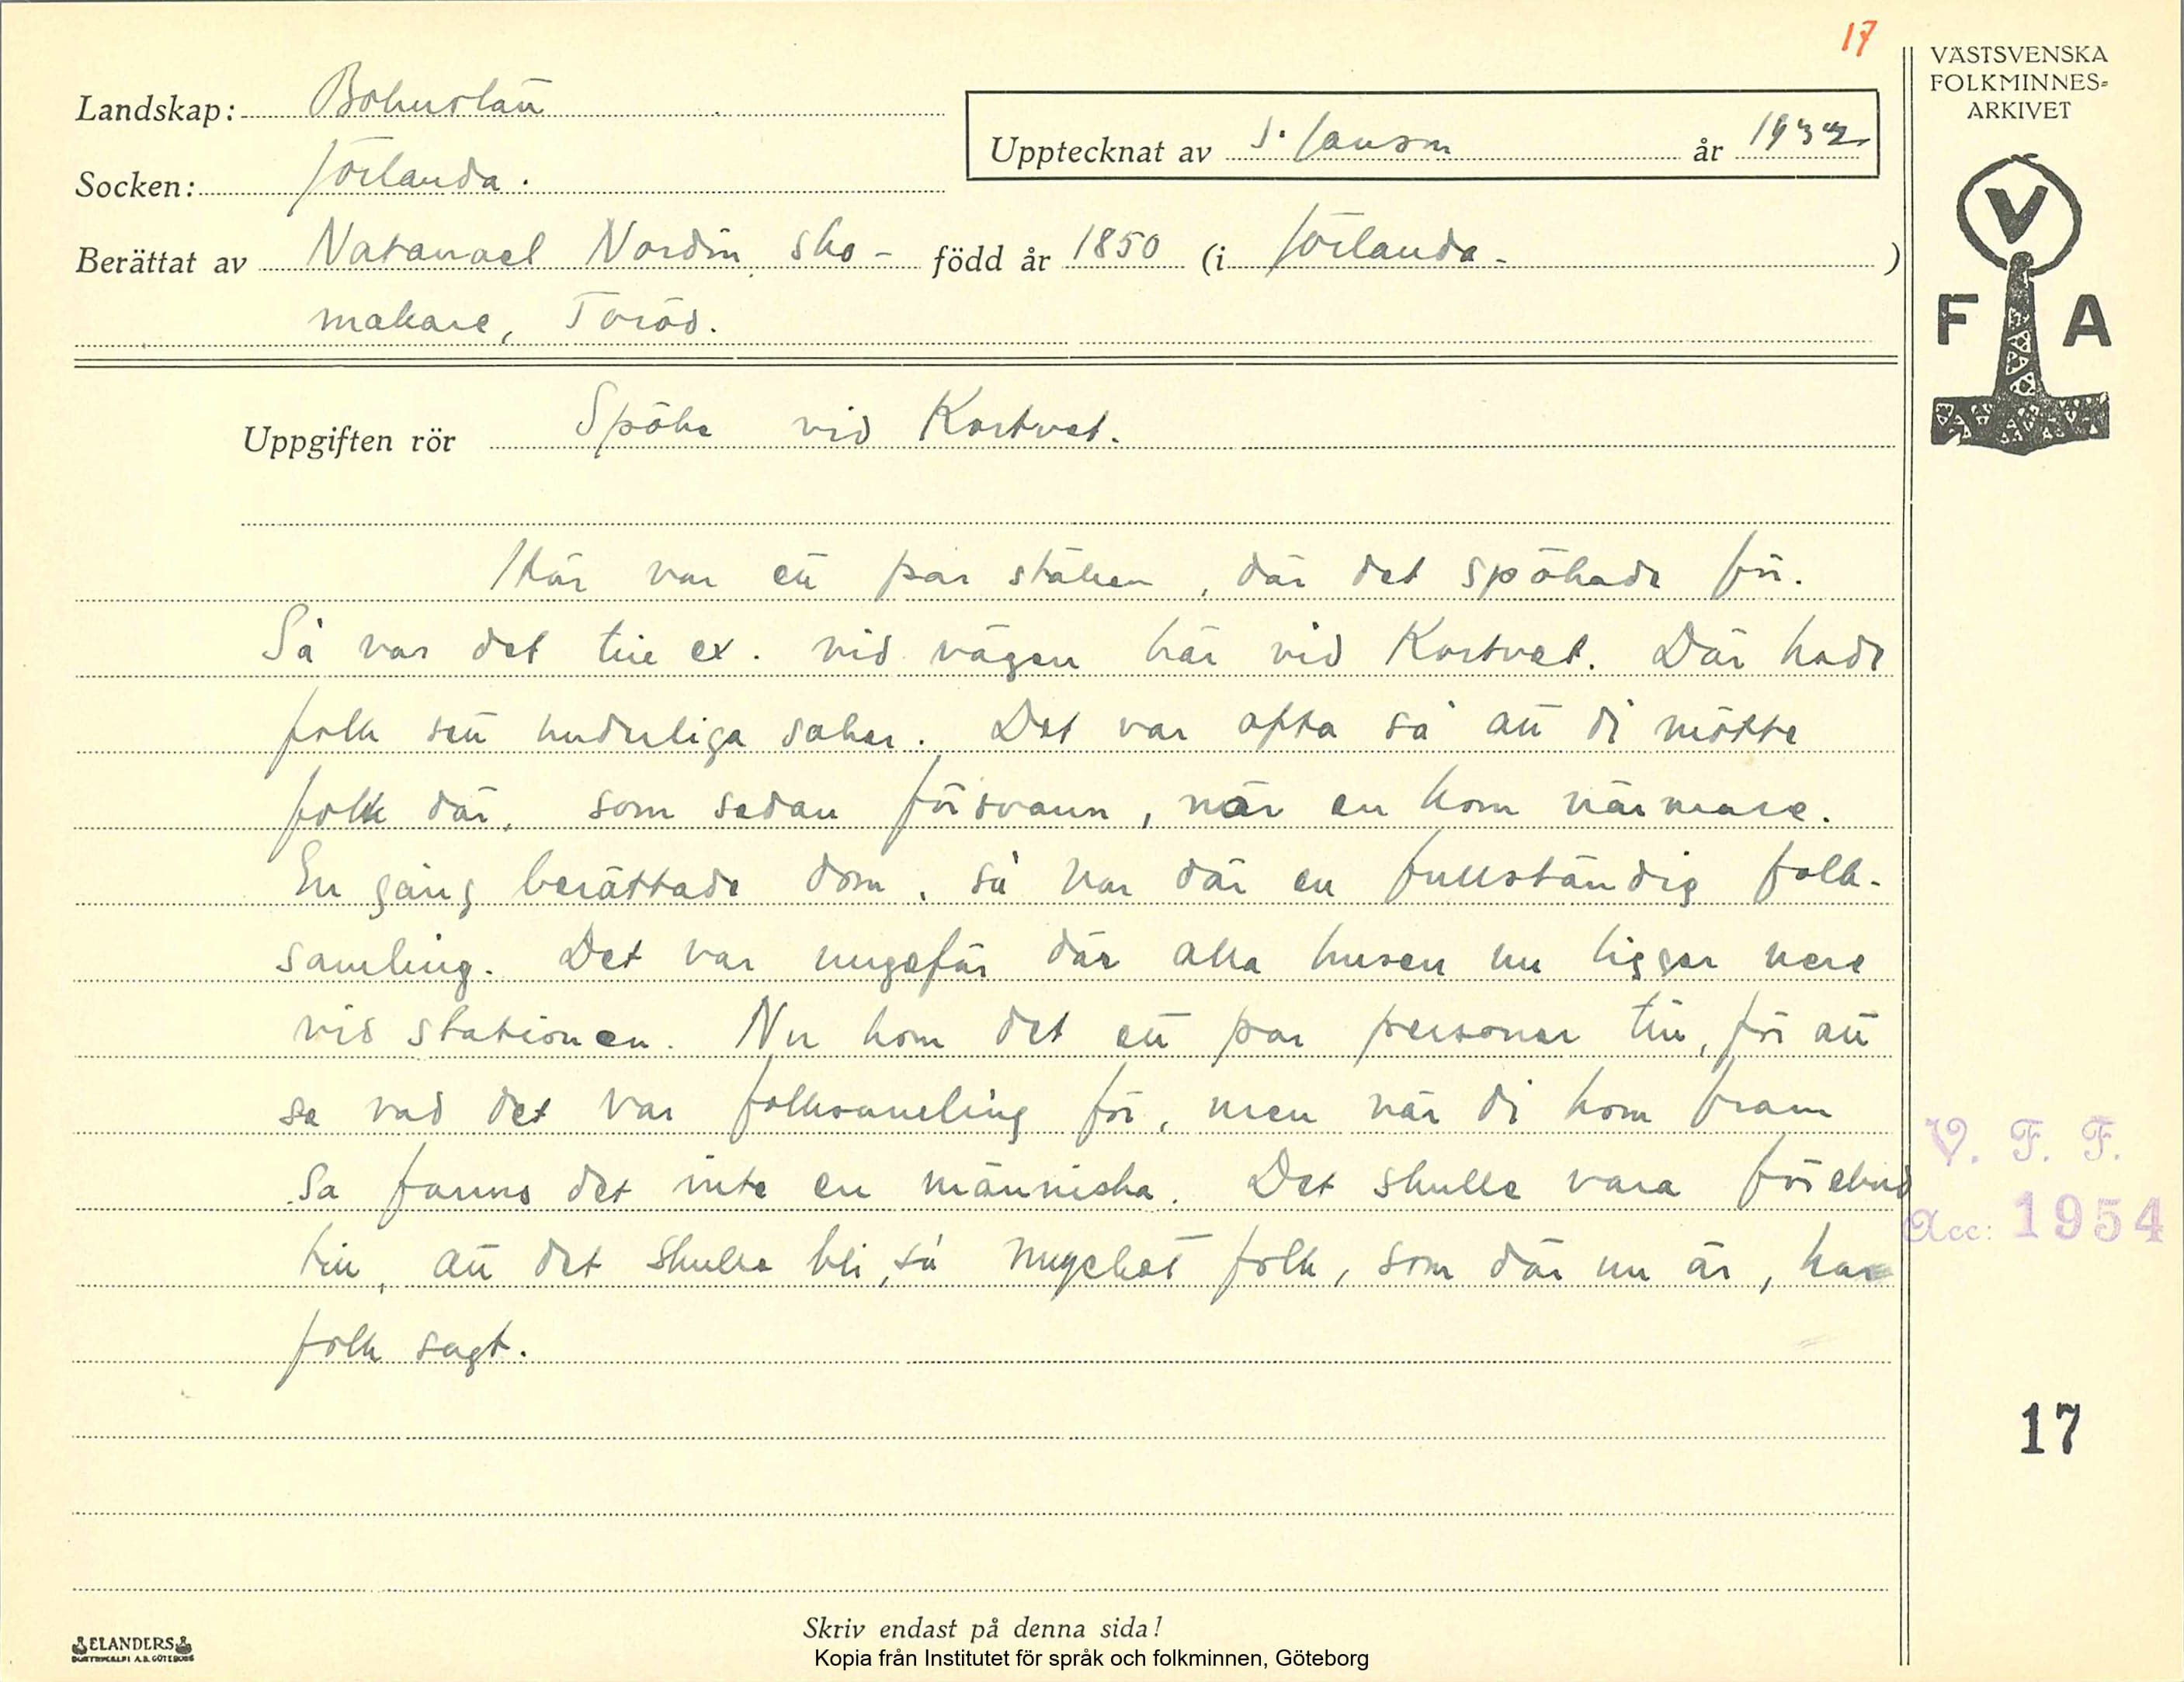 17
VÄSTSVENSKA
FOLKMINNES-
ARKIVET
Landskap: Bohuslän
Upptecknat av S. Janson år 1932
Socken: Jörlanda.
Berättat av Natanael Nordin, sko- född år 1850 (i Jörlanda.)
makare, Toröd.
V
F A
Uppgiften rör Spöke vid Kortvet.
Här var ett par ställen, där det spökade för.
Så var det till ex. vid vägen här vid Kortvet. Där hade
folk sett underliga saker. Det var ofta så att di mötte
folk där, som sedan försvann, när en kom närmare.
En gång berättade dom, så var där en fullständig folk-
samling. Det var ungefär där alla husen nu ligger nere
vid stationen. Nu kom det ett par personer till, för att
se vad det var folksamling för, men när di kom fram
så fanns det inte en människa. Det skulle vara förebud
till, att det skulle bli så mycket folk, som där nu är, har
folk sagt.
V. F. F.
Acc: 1954
17
Skriv endast på denna sida!
ELANDERS
Kopia från Institutet för språk och folkminnen, Göteborg